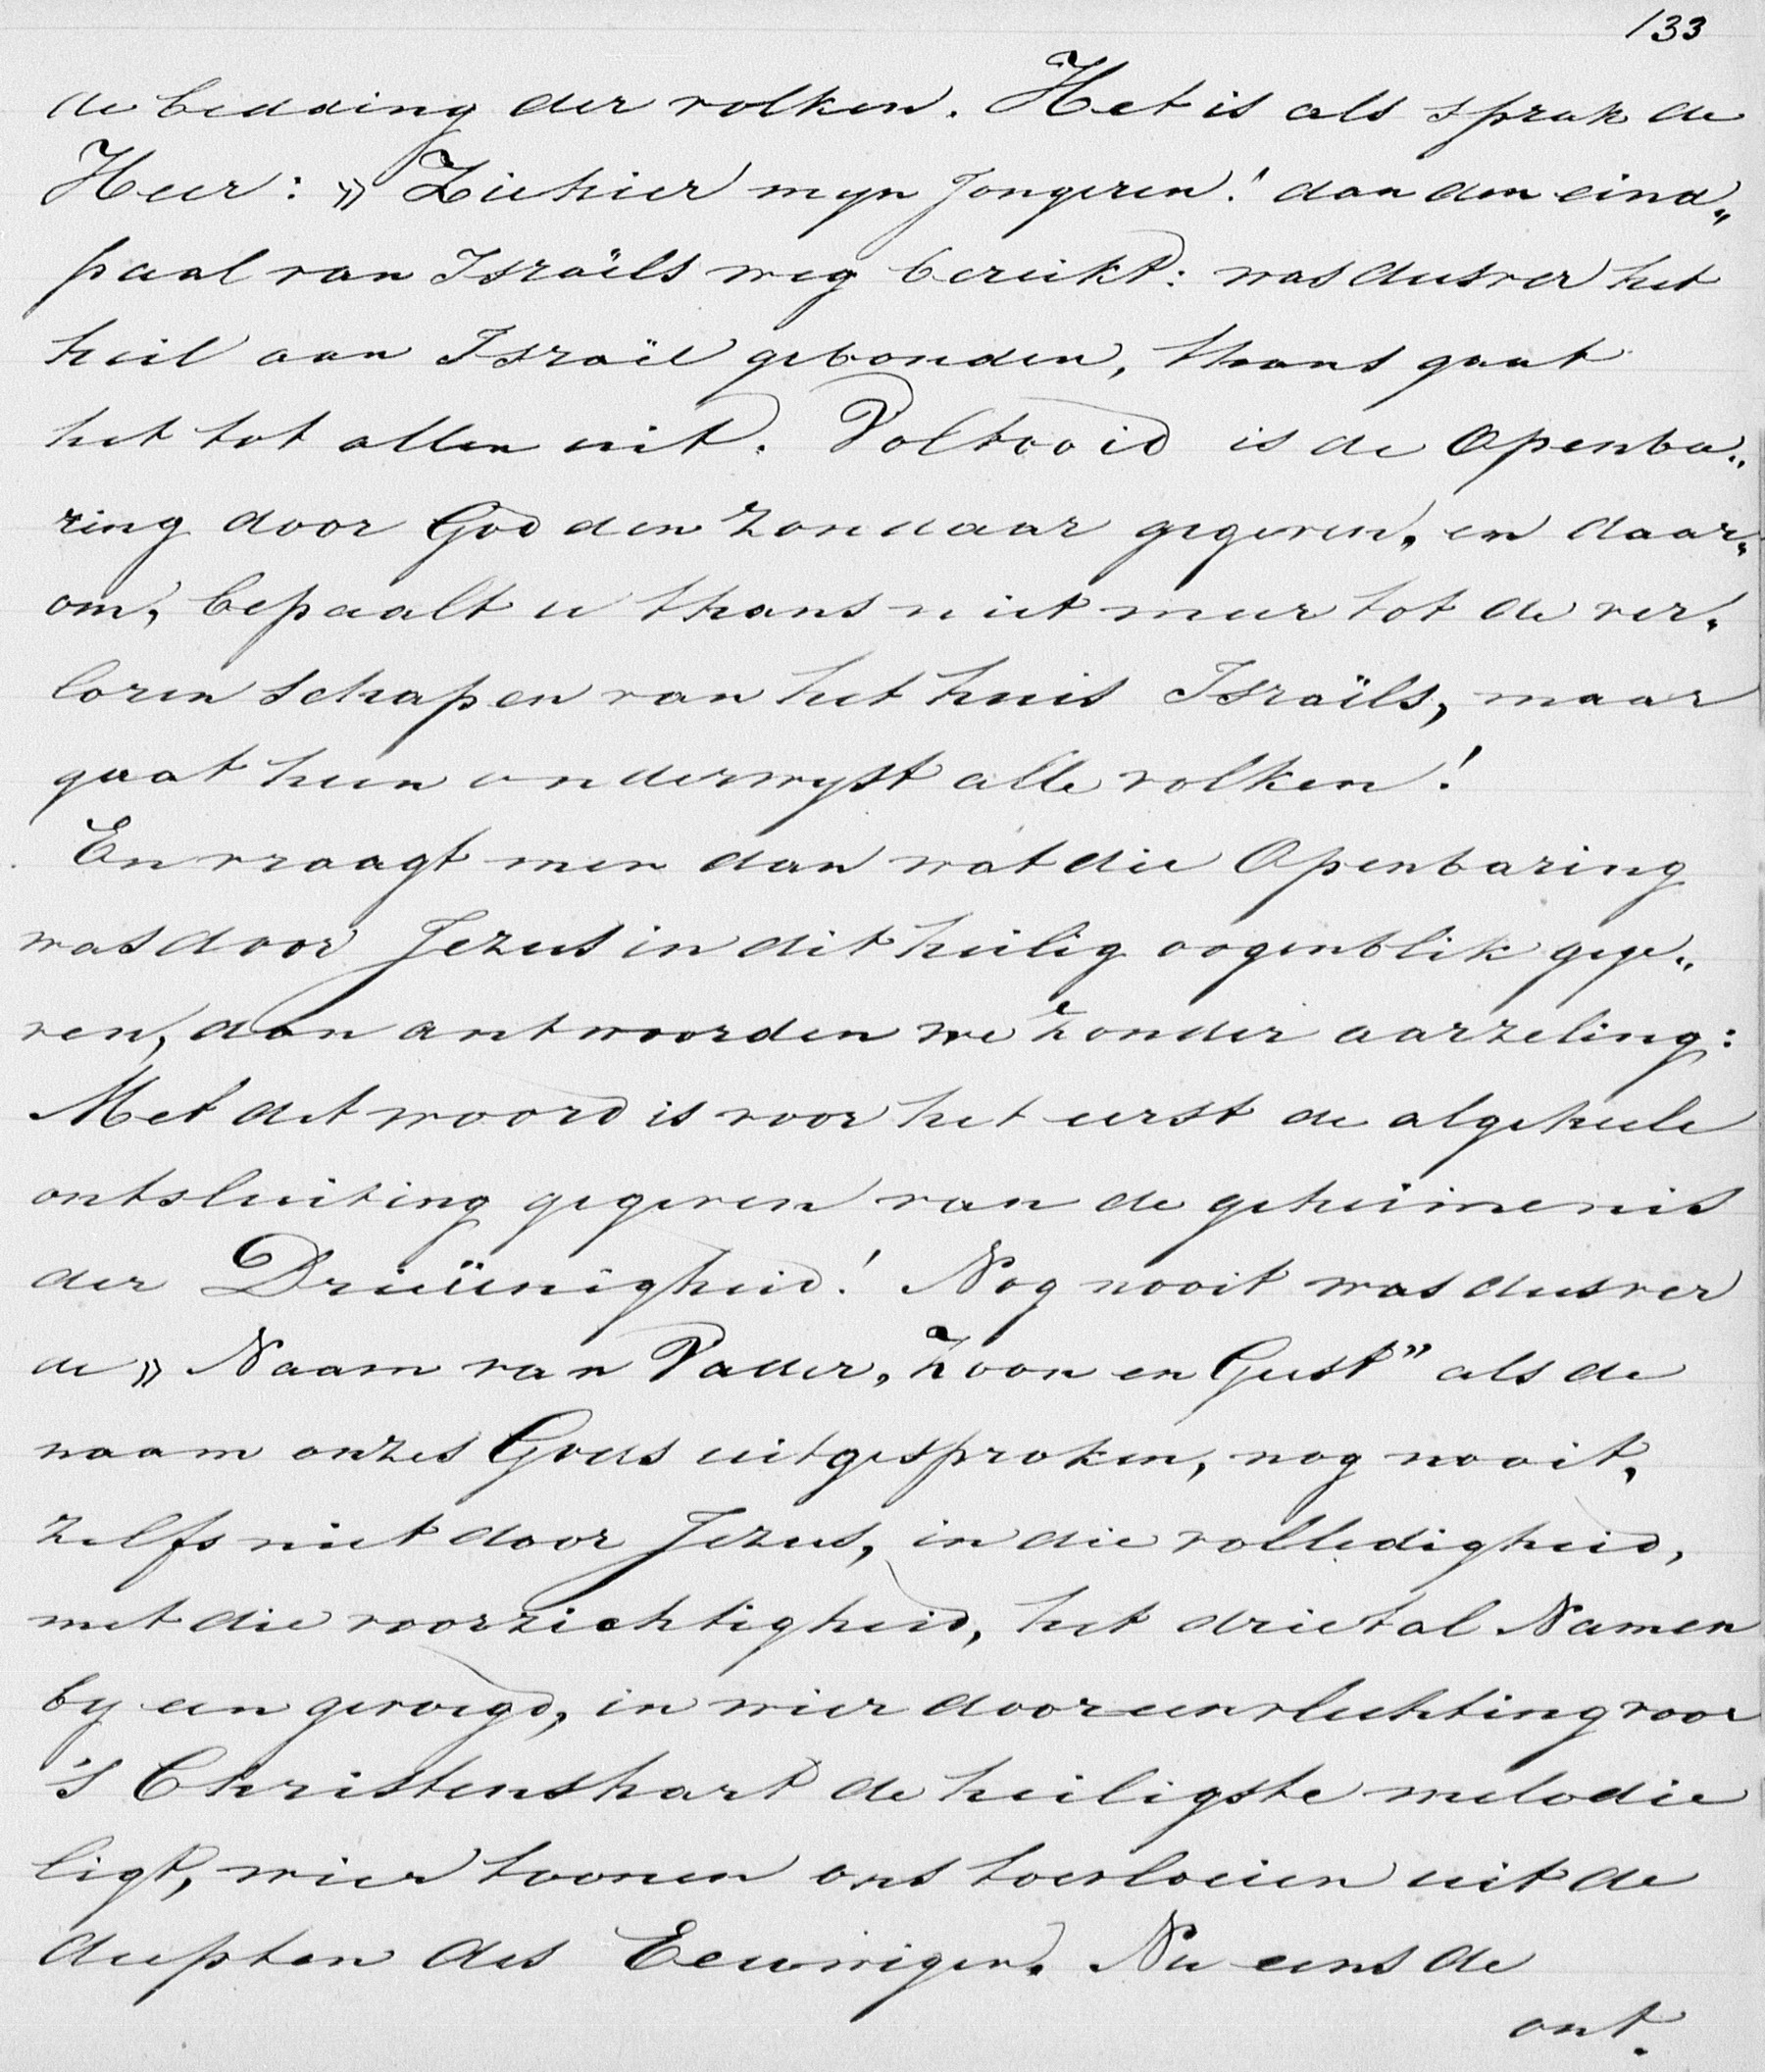 133
de bedding der volken. Het is als sprak de
Heer: „Ziehier mijn Jongeren! dan den eind„
paal van Israëls weg bereikt: was dusver het
heil aan Israël gebonden, thans gaat
het tot allen uit. Voltooid is de Openba„
ring door God den zondaar gegeven, en daar„
om, bepaalt u thans niet meer tot de ver„
loren schapen van het huis Israëls, maar
gaat heen onderwijst alle volken!
En vraagt men dan wat die Openbaring
was door Jezus in dit heilig oogenblik gege„
ven, dan antwoorden we zonder aarzeling:
Met dit woord is voor het eerst de algeheele
ontsluiting gegeven van de geheimenis
der Drieëenigheid! Nog nooit was dusver
de „Naam van Vader, Zoon en Geest” als de
naam onzes Gods uitgesproken, nog nooit,
zelfs niet door Jezus, in die volledigheid,
met die voorzichtigheid, het drietal Namen
bij een gevoegd, in wier dooreenvlechting voor
's Christenshart de heiligste melodie
ligt, wier toonen ons toevloeien uit de
diepten des Eeuwigen. Nu eens de
ont.